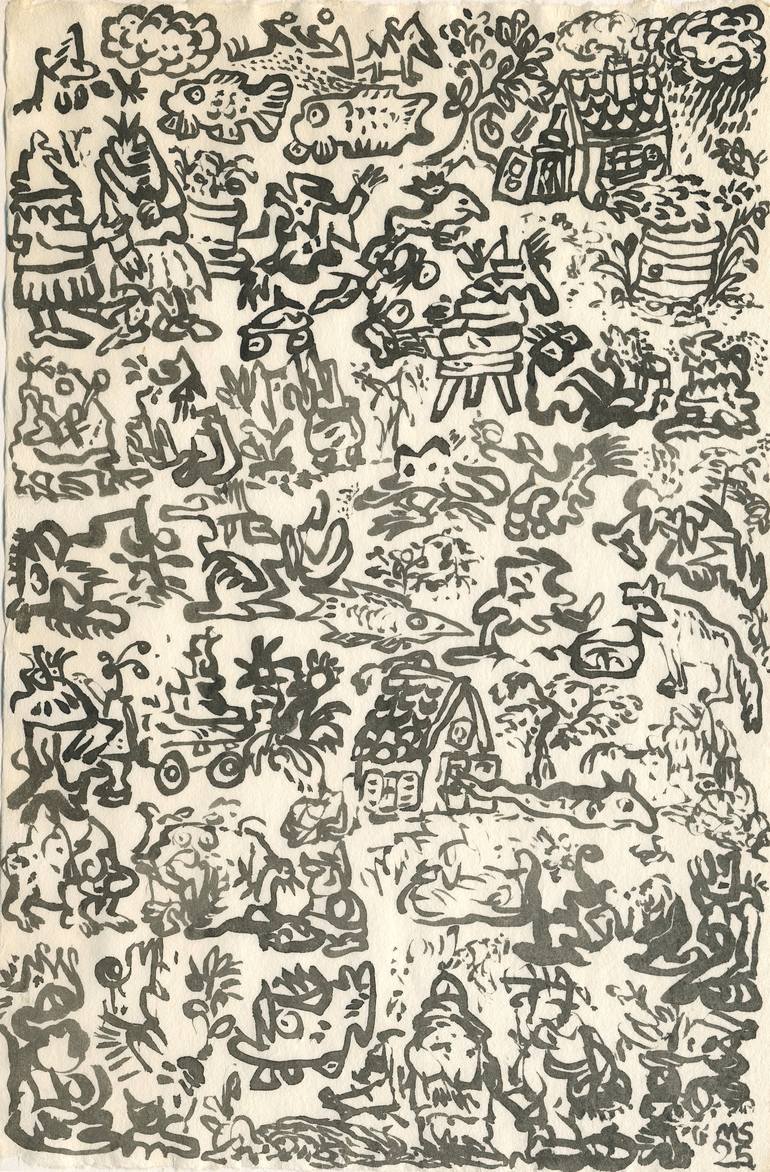 MS
25